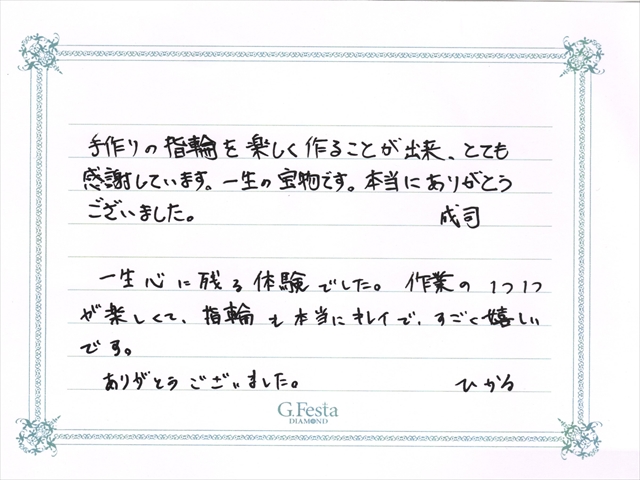 手作りの指輪を楽しく作ることが出来、とても
感謝しています。一生の宝物です。本当にありがとう
ございました。 成司
一生心に残る体験でした。作業の1つ1つ
が楽しくて、指輪も本当にキレイで、すごく嬉しい
です。
ありがとうございました。 ひかる
G.Festa
DIAMOND